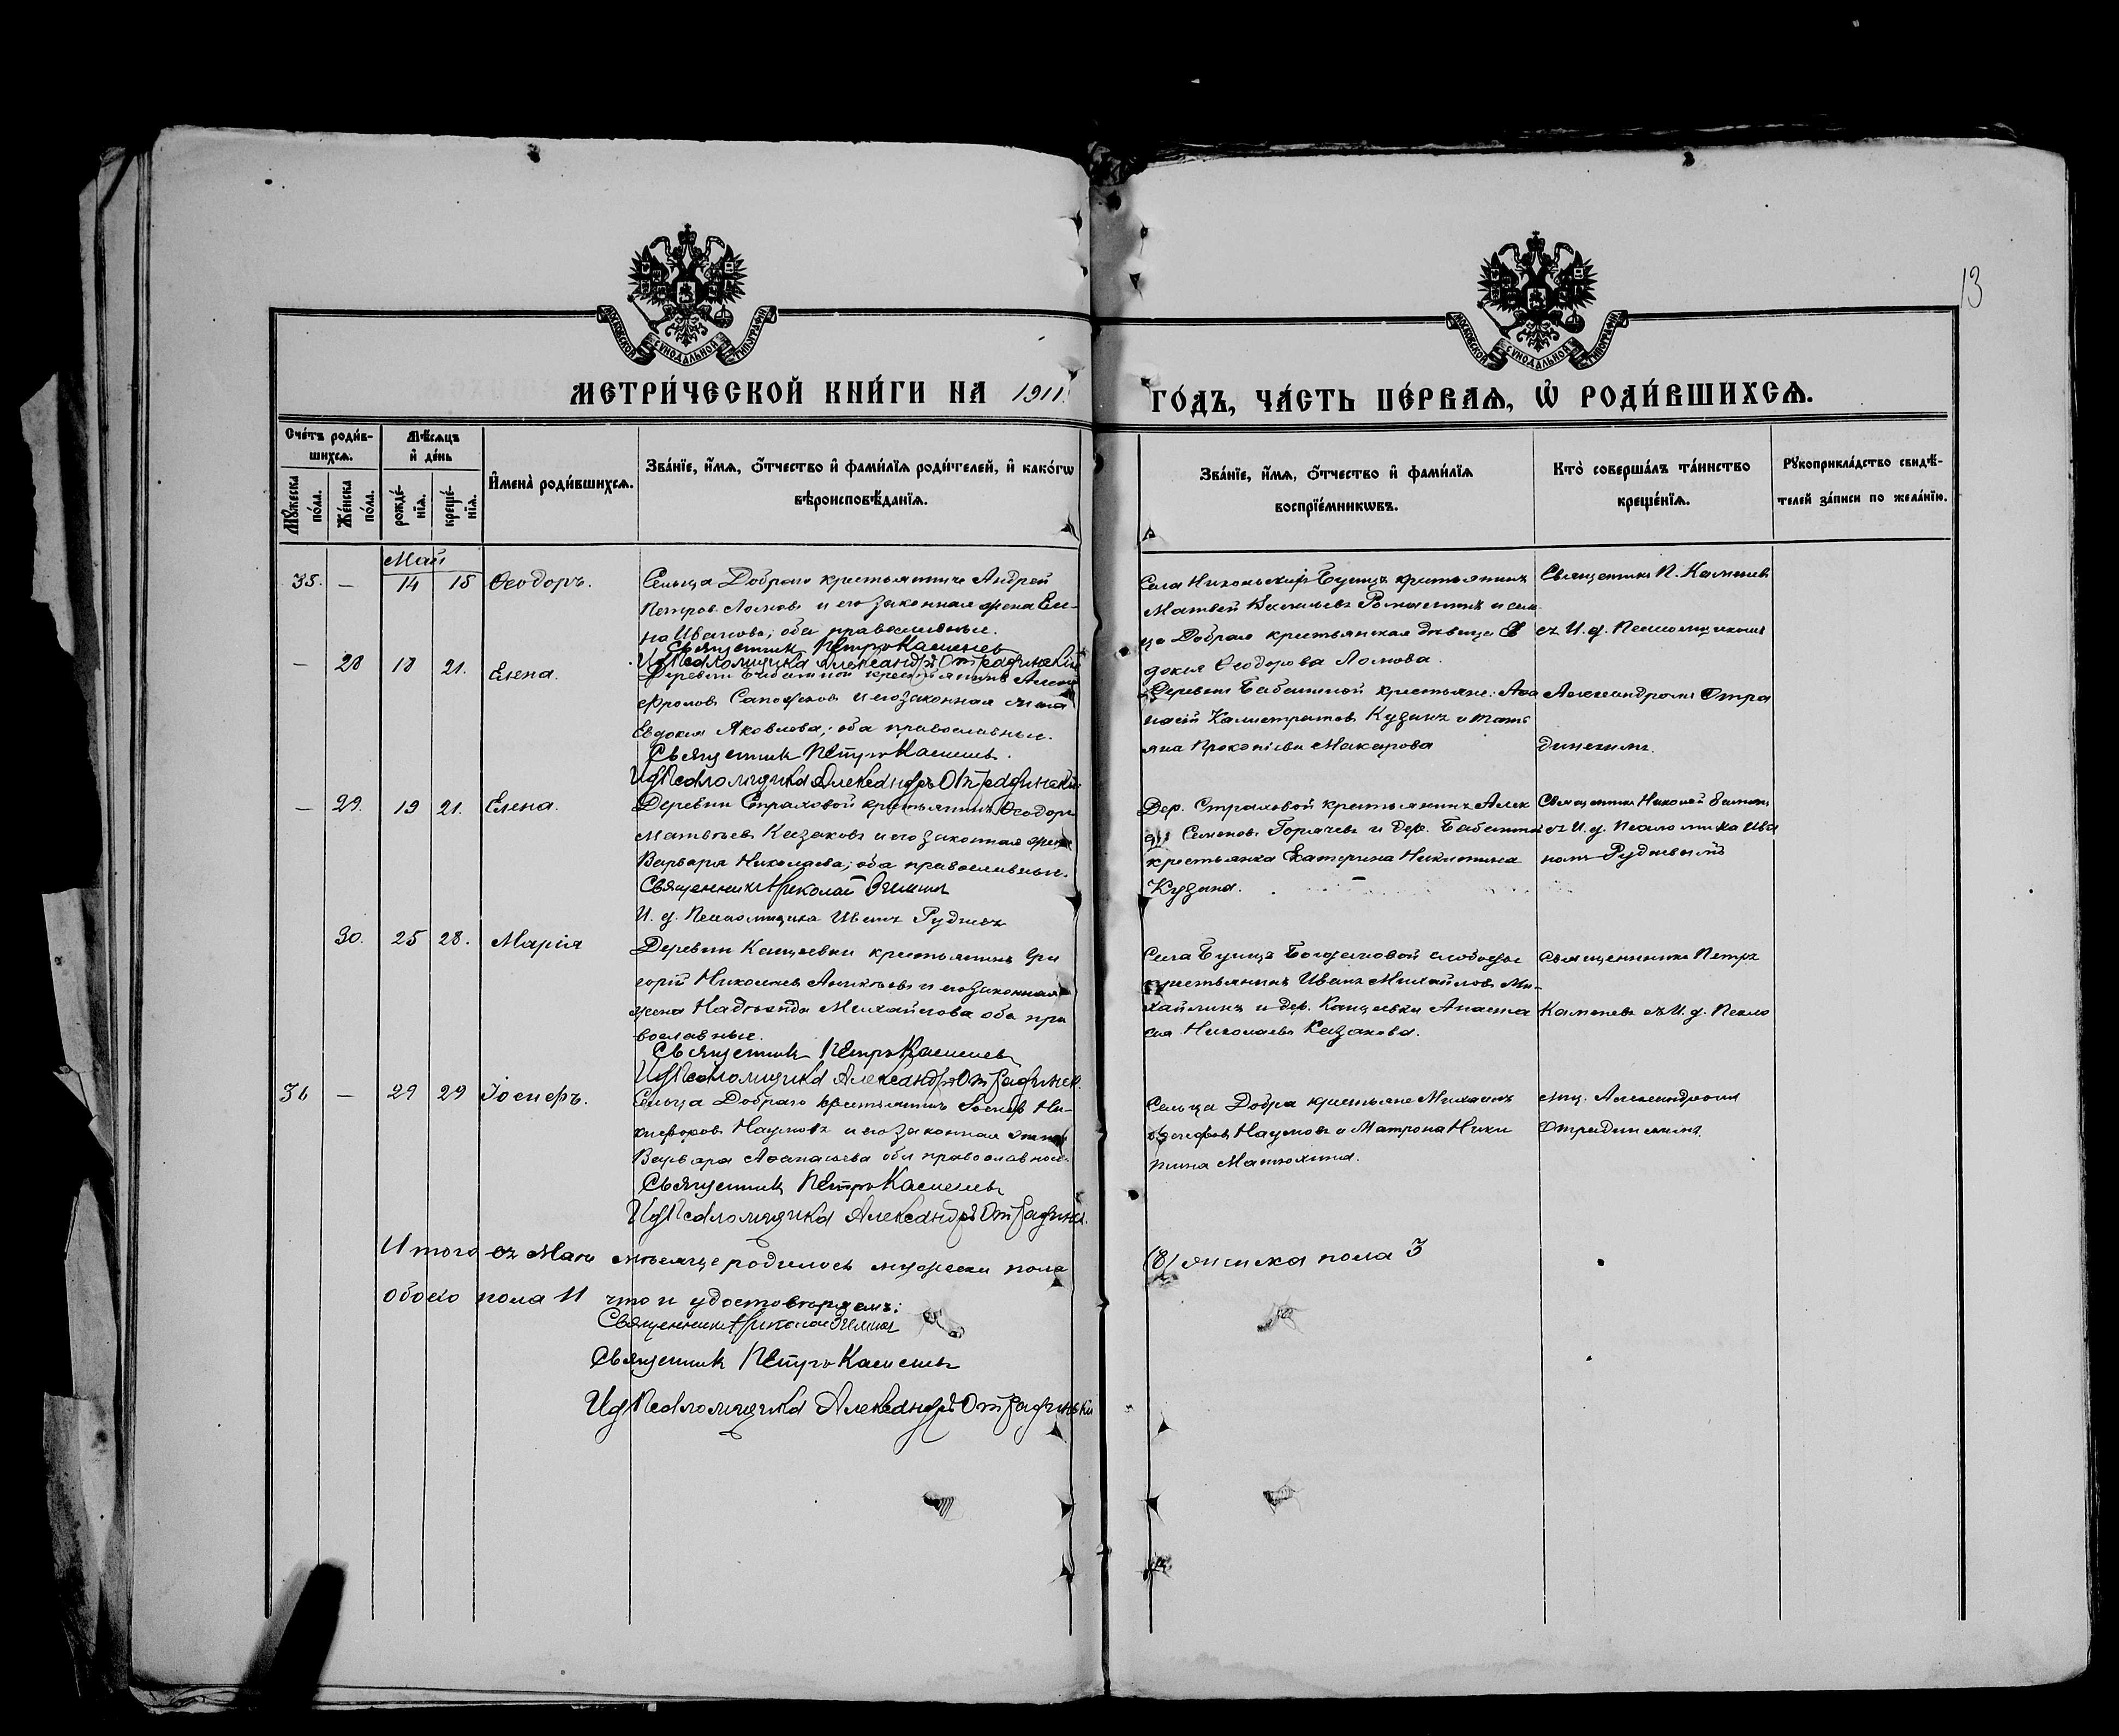 13
МОСКОВСКОЙ СѴНОДАЛЬНОЙ ТИПОГРАФІИ
МОСКОВСКОЙ СѴНОДАЛЬНОЙ ТИПОГРАФІИ
МЕТРИ́ЧЕСКОЙ КНИ́ГИ НА 1911
ГО́ДЪ, ЧА́СТЬ ПЕ́РВАѦ, Ѽ РОДИ́ВШИХСѦ.
Сче́тъ роди́в-
шихсѧ.
Мꙋ́жеска по́ла.
Же́нска по́ла.
Мѣ́сѧцъ
и҆ де́нь
рожде́-
нїѧ.
креще́-
нїѧ.
И҆мена̀ роди́вшихсѧ.
Зва́нїе, и҆́мѧ, ѻ҆́тчество и҆ фами́лїѧ роди́телей, и҆ како́гѡ
вѣроисповѣ́данїѧ.
Зва́нїе, и҆́мѧ, ѻ҆́тчество и҆ фами́лїѧ
воспрїе́мникѡвъ.
Кто̀ соверша́лъ та́инство
креще́нїѧ.
Рꙋкоприкла́дство свидѣ́-
телей за́писи по жела́нїю.
Май
35. — 14 15 Ѳеодоръ.
Сельца Добраго крестьянинъ Андрей
Петровъ Ломовъ и его законная жена Еле-
на Иванова; оба православные.
Священникъ Петръ Каменевъ
И д Псаломщика Александръ Отрадинскій
Села Бунцъ крестьянинъ
Матвей и сель-
ца Добраго крестьянская девица Ев
докія Ѳеодорова Ломова.
Священникъ П. Каменевъ
съ И. д. Псаломщикомъ
— 28 18 21. Елена.
Деревни Бабаниной крестьянинъ
Фроловъ Сапожковъ и его законная жена
Евдокія Яковлева; оба православные.
Священникъ Петръ Каменевъ.
И д Псаломщика Александръ Отрадинскій
Деревни Бабаниной крестьяне: Аѳа
насій Калистратовъ Кузинъ и Тать
яна Прокопіева Макарова
Александромъ Отра
динскимъ.
— 29. 19 21. Елена.
Деревни Страховой крестьянинъ Ѳеодоръ
Матвѣевъ Казаковъ и его законная жена
Варвара Николаева; оба православные.
Священникъ Николай
И. д. Псаломщика Иванъ Рудневъ
Дер. Страховой крестьянинъ Алек
Семеновъ Горячевъ и дер. Бабаниной
крестьянка Екатерина Никитина
Кузина.
Священникъ Николай
съ И. д. Псаломщика Ива
номъ Рудневымъ
30. 25 28. Марія
Деревни Кащеевки крестьянинъ Гри
горій Николаевъ и его законная
жена Надежда Михайлова оба пра
вославные.
Священникъ Петръ Каменевъ
И д Псаломщика Александръ Отрадинск.
Села Бунцъ слободы
крестьянинъ Иванъ Михайловъ Ми-
хайлинъ и дер. Кащеевки Анаста
сія Николаева Казакова.
Священникъ Петръ
Каменевъ съ И. д. Псало
36 — 29 29 Іосифъ.
Сельца Добраго крестьянинъ Іосифъ Ни-
кифоровъ Наумовъ и его законная жена
Варвара Аѳанасьева оба православные.
Священникъ Петръ Каменевъ
И д Псаломщика Александръ Отрадинск.
Сельца Добра крестьяне Михаилъ
Іосифовъ Наумовъ и Матрона Ники
тина Матюхина.
мщ. Александромъ
Отрадинскимъ.
Итого въ Маѣ мѣсяце родилось мужеска пола
(8) женска пола 3
обоего пола 11 что и удостовѣряемъ:
Священникъ Николай
Священникъ Петръ Каменевъ
И д Псаломщика Александръ Отрадинскій